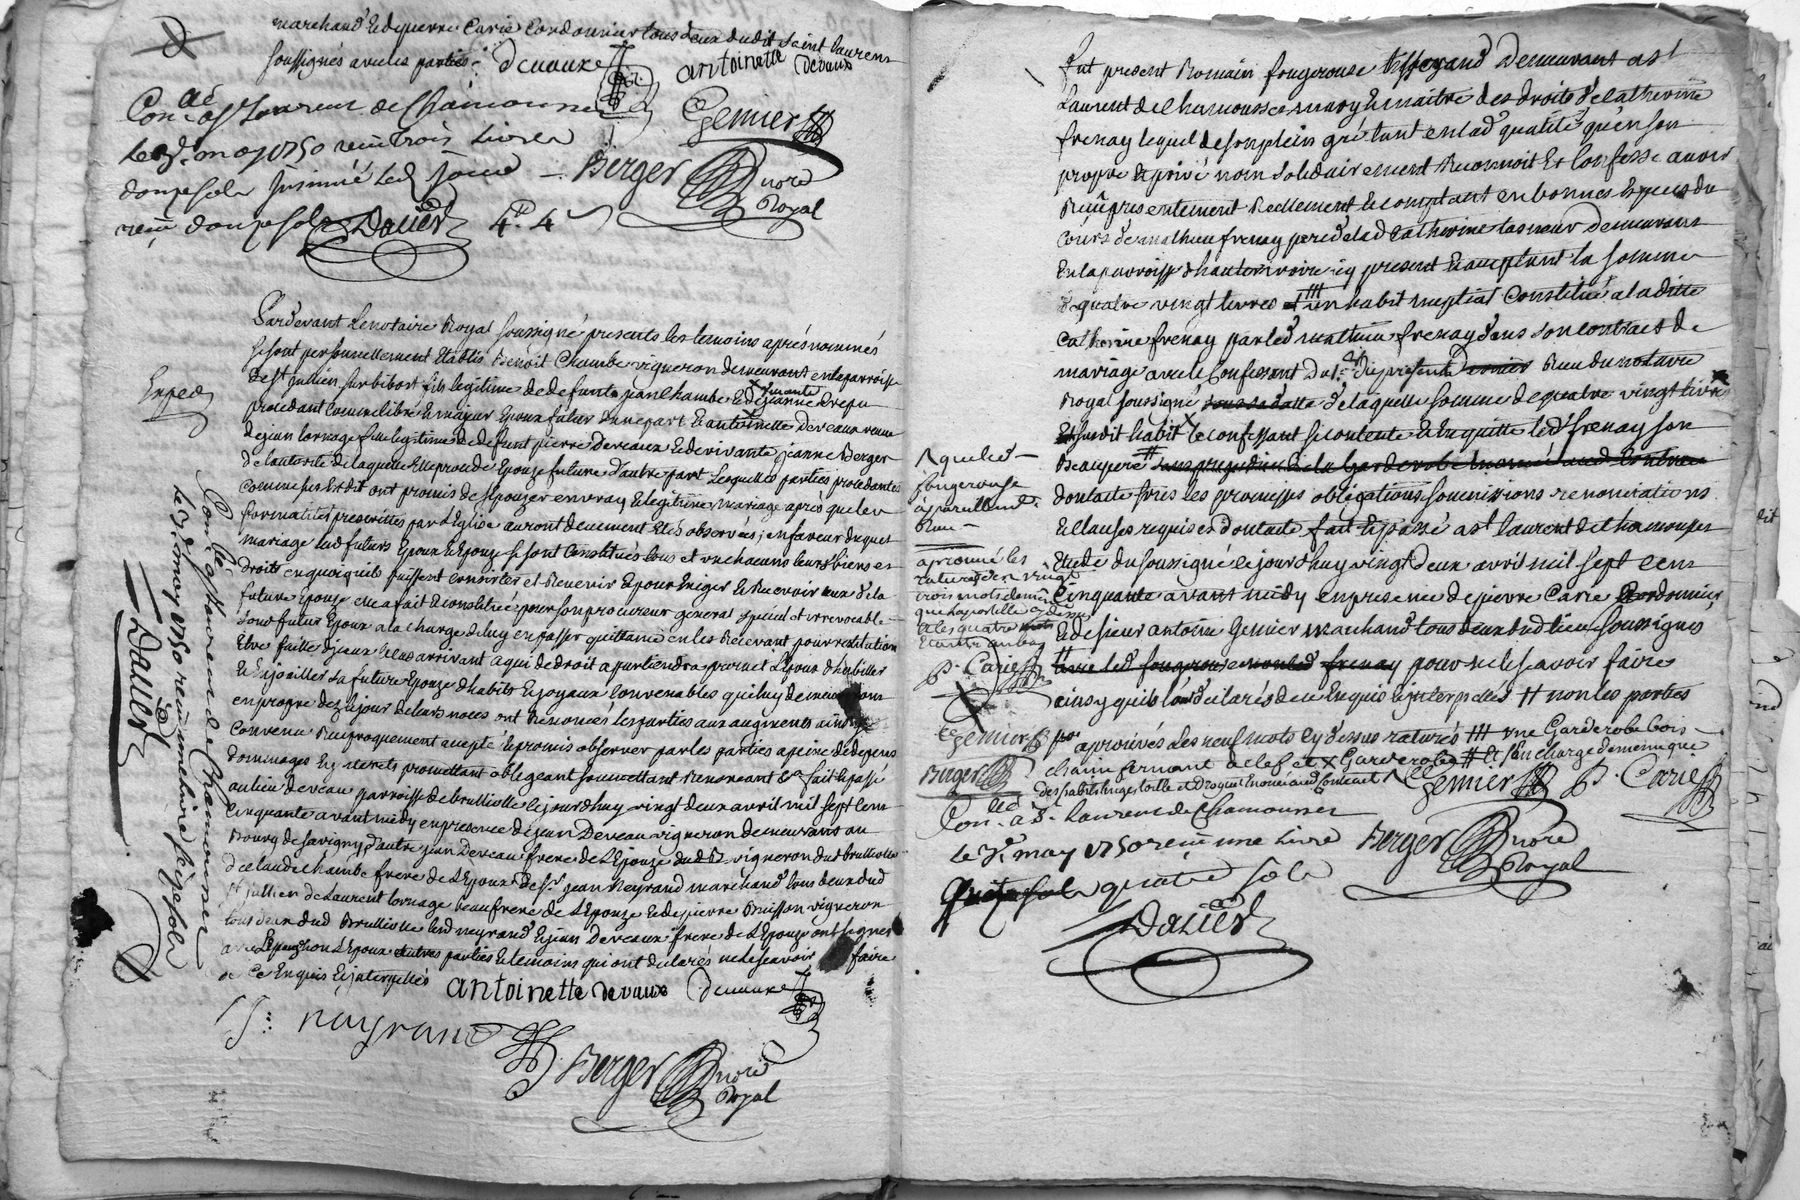 marchand Et de pierre Carie Cordonnier tous deux dudit Saint Laurens
soussignés avec les parties devaux
antoinette devaux
Con.lé a St Laurens de Chamousset
Le 3e may 1750 reçu trois Livres
douze sols Insinué Led. jour
reçu douze sols Dalier 4# 4s
Gemier
Berger nore Royal
Pardevant Le notaire Royal soussigné presents les temoins après nommés
se sont personnellement Etablis Benoit Chambe vigneron demeurant en la parroisse
de St jullien sur bibost fils legitime de defunt jean Chambe Et de vivante jeanne Crepu
procedant Comme libre Et majeur Epoux futur d'une part Et antoinette Deveaux veuve
de jean Cornage fille legitime de defunt pierre Deveaux Et de vivante jeanne Berger
de l'autorité de laquelle Elle procede Epouze future d'autre part Lesquelles parties procedantes
Comme sus Est dit ont promis de s'Epouzer en vray Et legitime Mariage après que les
formalités prescrittes par L'Eglise auront deuement Etés observées, en faveur duquel
mariage led. futurs Epoux Et Epouze se sont Constitués tous et un chacuns leurs biens et
droits en quoiqu'ils puissent consister et Revenir Et pour Exiger Et Recevoir ceux de la
future Epouze elle a fait Et constitué pour son procureur general special et irrevocable
led. futur Epoux a la charge de luy en passer quittance en les Recevant pour restitution
Etre faitte d'jceux le cas arrivant a qui de droit apartiendra promet L'Epoux d'habiller
Et Enjoailler sa future Epouze d'habits Et joyaux Convenables qui luy demeureront
en propre dez le jour de leurs noces ont Renoncés les parties aux augments ainsy
Convenu Reciproquement accepté Et promis observer par les parties a peine de depens
dommages Et jnterets promettant obligeant soumettant Renonceant Et.a fait Et passé
au lieu de veau parroisse de brulliolle le jourd'huy vingt deux avril mil sept Cens
Cinquante avant midy en presence de jean Deveau vigneron demeurans au
Bourg de Savigny d'autre jean Deveau frere de L'Epouze dud. vigneron dud. brulliolle
de Claude Chambe frere de L'Epoux de Sr jean Neyrand marchand tous deux dud.
St jullien de Laurent Cornage beaufrere de L'Epouze Et de pierre Buisson vigneron
tous deux dud. Brulliolle led. neyrand Et jean Deveaux frere de L'Epouze ont signés
avec L'Epouze non L'Epoux autres parties Et temoins qui ont declarés ne le scavoir faire
de Ce Enquis Et jnterpellés antoinette devaux devaux
J: nayrand
Berger nore Royal
Exped.
Con.lé a St Laurens de Chamousset
Le 3e may 1750 reçu une livre seize sols
Dalier
Fut present Romain fougerouse tisserand Demeurant a St
Laurent de Chamousset mary Et maitre des droits de Catherine
frenay lequel de son plein gré tant en lad. qualité qu'en son
propre Et privé nom solidairement Reconnoit Et Confesse avoir
Reçu presentement Reellement Et comptant en bonnes Especes du
Cours de mathieu frenay pere de lad. Catherine tasneur Demeurans
En la parroisse d'hauterivoire jcy present Et acceptant la somme
de quatre vingt livres Et # un habit nuptial Constitué a la ditte
Catherine frenay par led. mathieu frenay dans son contract de
mariage avec le Confessant Du 2e du present Reçu du notaire
Royal soussigné de laquelle somme de quatre vingt livres
Et susdit habit le confessant se contente Et En quitte led. frenay son
Beaupere
dont acte sous les promesses obligations soumissions renonciations
Et clauses requises dont acte fait Et passé a St laurent de Chamousset
Etude du soussigné le jourd'huy vingt deux avril mil sept cens
Cinquante avant midy en presence de pierre Carie Cordonnier
Et de sieur antoine Gemier marchand tous deux dud. lieu soussignés
avec led. fougerouse non led. frenay pour ne le scavoir faire
ainsy qu'ils l'ont declarés de ce Enquis Et jnterpellés # non les parties
aprouvés Les neuf mots cy dessus raturés ### une Garderobe bois
de sapin fermant a clef et x Garderobe # Et s'en charge de meme que
des habits linge toille et drogue Enoncé aud. Contract
laquelle
fougerouse
aprouvé les
ratures de vingt
trois mots de meme
que la postille cy dessus
Et les quatre mots
P. Carie
Gemier
Berger
Con.lé a St Laurens de Chamousset
Le 3e may 1750 reçu une Livre
quatre sols
Dalier
Gemier P. Carie
Berger nore Royal